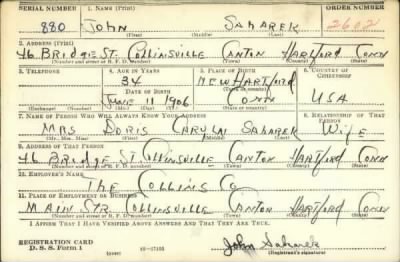 SERIAL NUMBER 1. NAME (Print) ORDER NUMBER
880 JOHN SAHAREK 2602
(First) (Middle) (Last)
2. ADDRESS (Print)
46 BRIDGE ST. COLLINSVILLE CANTON HARTFORD CONN
(Number and street or R. F. D. number) (Town) (County) (State)
3. TELEPHONE 4. AGE IN YEARS 5. PLACE OF BIRTH 6. COUNTRY OF CITIZENSHIP
34 NEW HARTFORD
DATE OF BIRTH (Town or county)
JUNE 11 1906 CONN USA
(Exchange) (Number) (Mo.) (Day) (Yr.) (State or country)
7. NAME OF PERSON WHO WILL ALWAYS KNOW YOUR ADDRESS 8. RELATIONSHIP OF THAT PERSON
MRS DORIS SAHAREK WIFE
(Mr., Mrs., Miss) (First) (Middle) (Last)
9. ADDRESS OF THAT PERSON
46 BRIDGE ST COLLINSVILLE CANTON HARTFORD CONN
(Number and street or R. F. D. number) (Town) (County) (State)
10. EMPLOYER'S NAME
THE COLLINS CO
11. PLACE OF EMPLOYMENT OR BUSINESS
MAIN STR. COLLINSVILLE CANTON HARTFORD CONN
(Number and street or R. F. D. number) (Town) (County) (State)
I AFFIRM THAT I HAVE VERIFIED ABOVE ANSWERS AND THAT THEY ARE TRUE.
REGISTRATION CARD
D. S. S. Form 1 (over) 16—17105 John Saharek
(Registrant's signature)